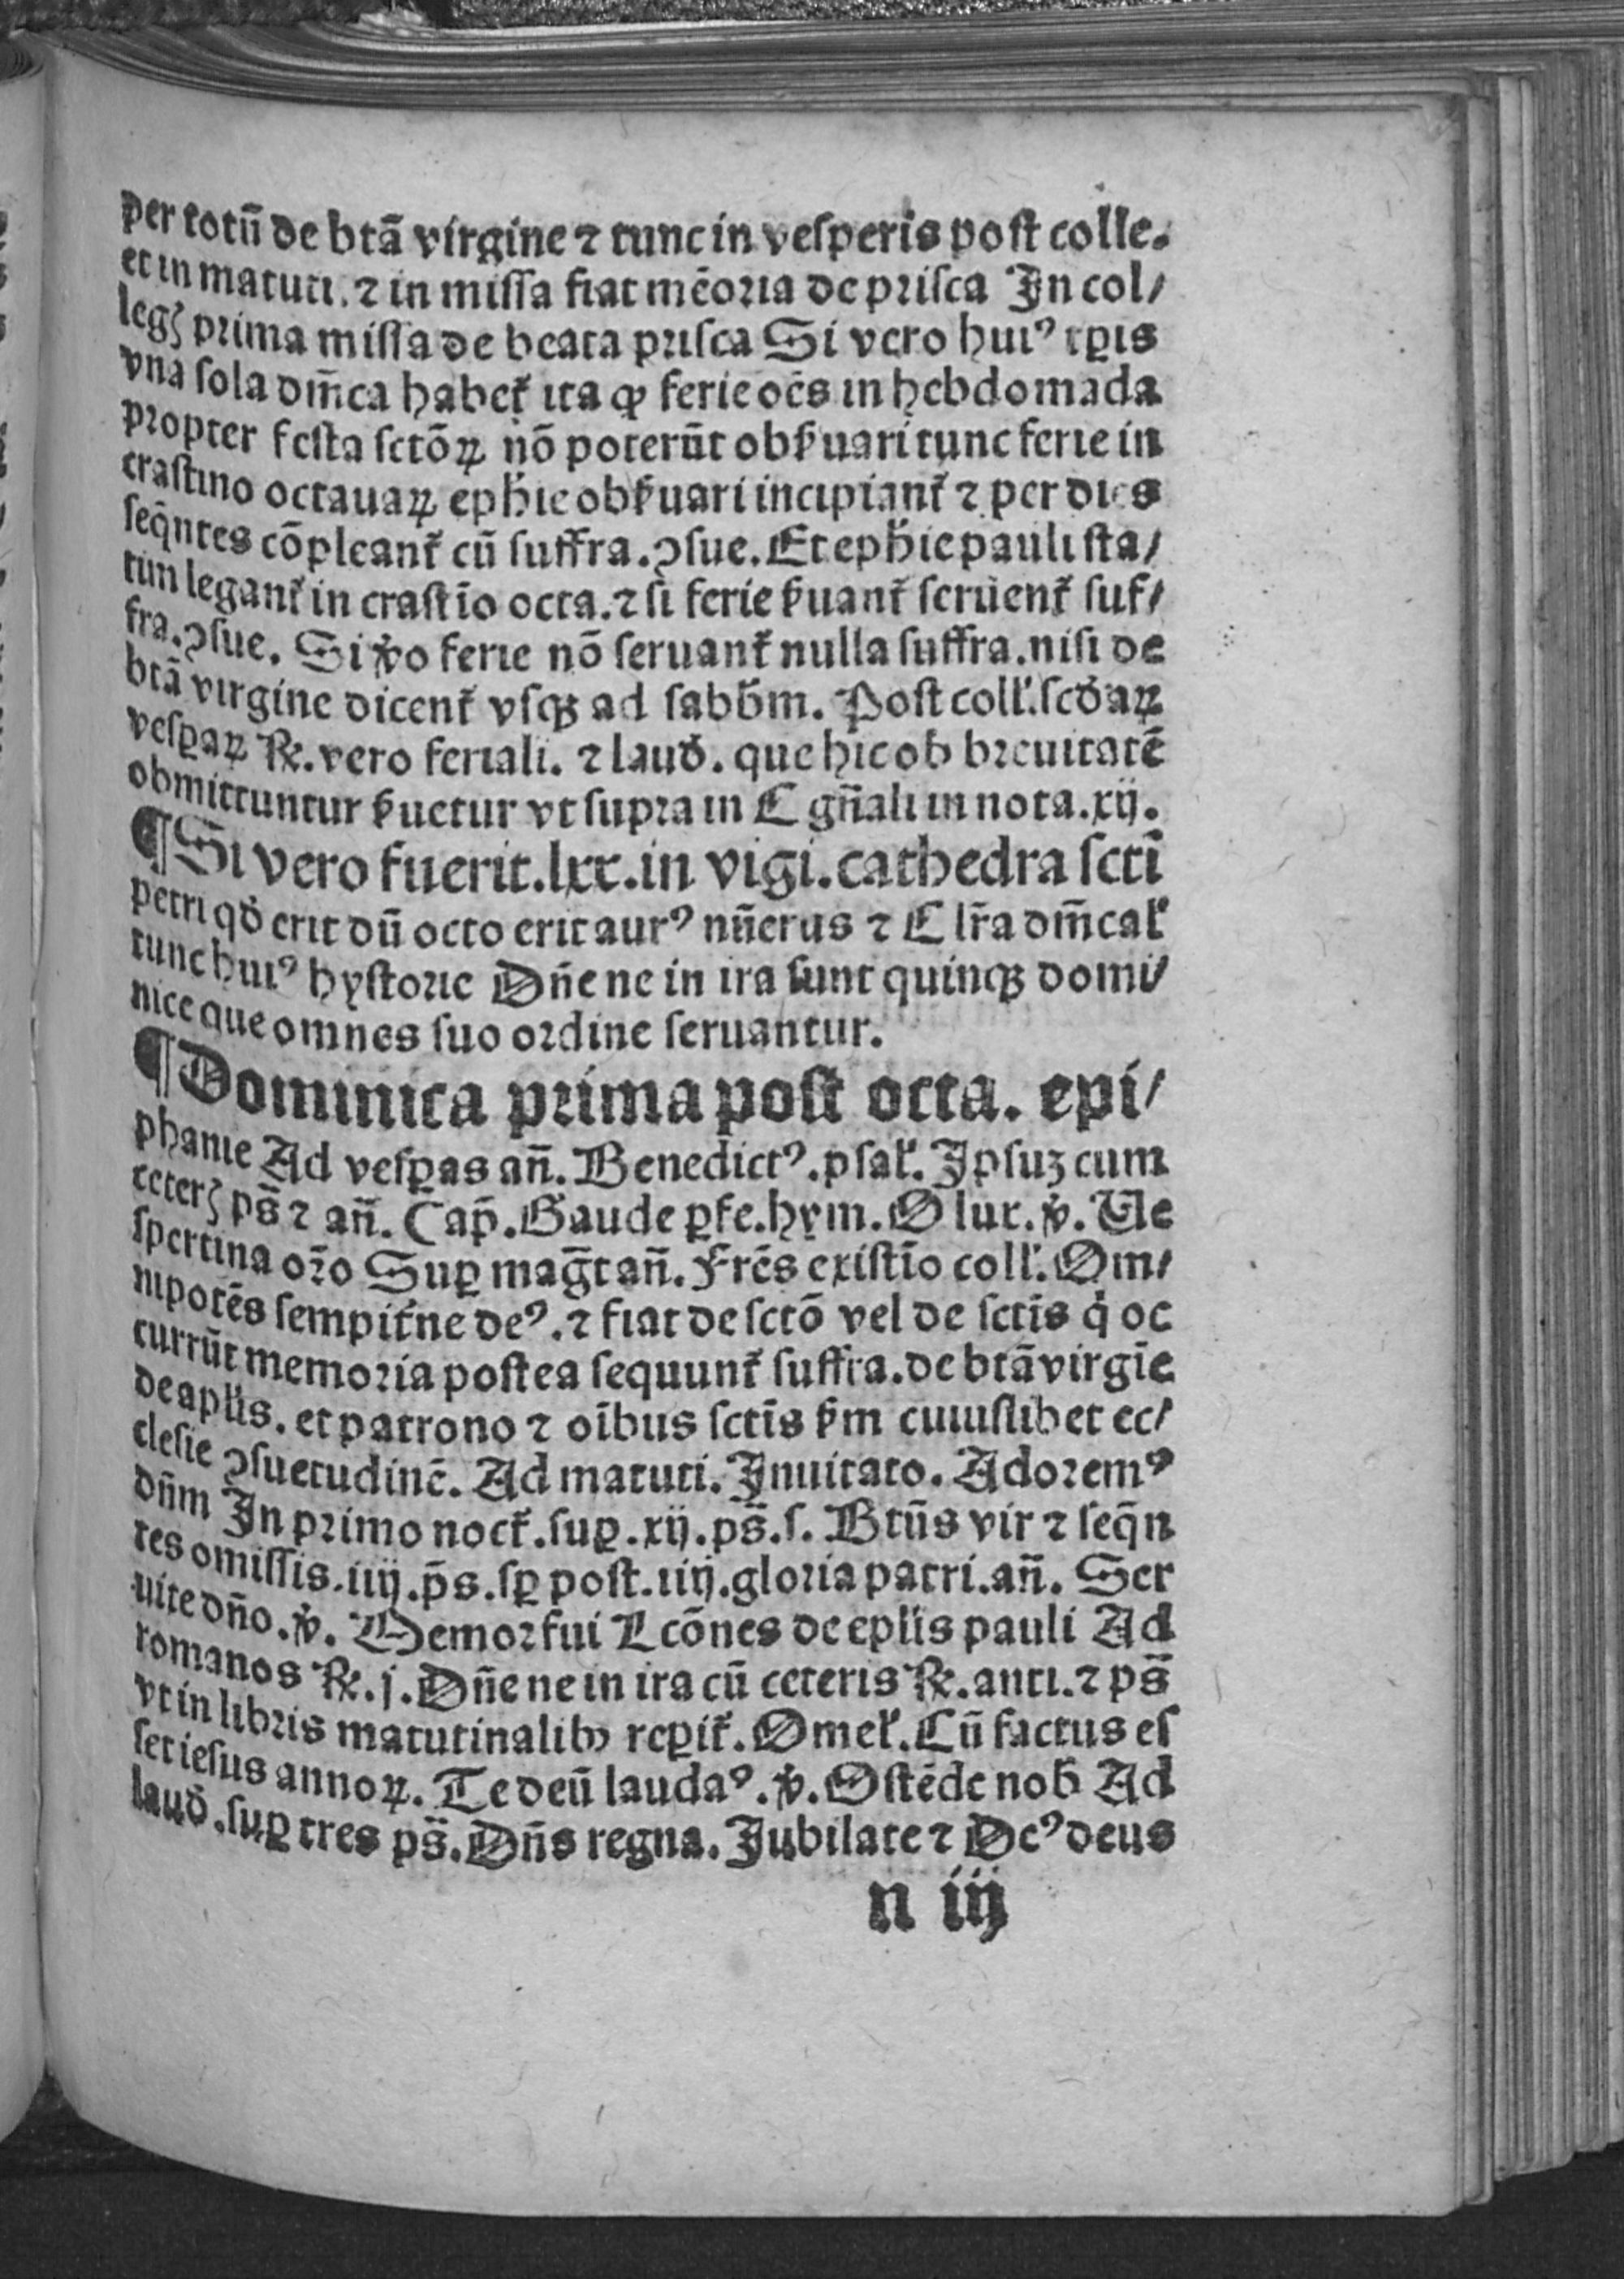 per totū de btā virgine ⁊ tunc in veſperis poſt colle.
et in matuti. ⁊ in miſſa fiat mēoꝛia de pꝛiſca In col/
legꝭ pꝛima miſſa de beata pꝛiſca Si vero huiꝰ tꝑis
vna ſola dm̄ca habet᷑ ita ꝙ ferie oēs in hebdomada
pꝛopter feſta ſctōꝝ nō poterūt obẜuari tunc ferie in
craſtino octauaꝝ epħie obẜuari incipiant᷑ ⁊ per dies
ſeq̄ntes cōpleant᷑ cū ſuffra.ꝯſue. Et epħie pauli ſta/
tim legant᷑ in craſtīo octa.⁊ ſi ferie ẜuant᷑ ſeruent᷑ ſuf/
fra.ꝯſue. Si ꝟo ferie nō ſeruant᷑ nulla ſuffra.niſi de
btā virgine dicent᷑ vſqꝫ ad ſabb̄m. Poſt coll'.ſcd̓aꝝ
veſꝑaꝝ ℞.vero feriali. ⁊ laud̓. que hic ob bꝛeuitatē
obmittuntur ẜuetur vt ſupꝛa in C gn̄ali in nota.xij.
¶Si vero fuerit.lxx.in vigi.cathedra ſcti̅
petri qd̓ erit dū octo erit aurꝰ nūerus ⁊ C lr̄a dm̄cal'
tunc huiꝰ hyſtoꝛie Dn̄e ne in ira ſunt quinqꝫ domi/
nice que omnes ſuo oꝛdine ſeruantur.
¶Dominica pꝛima poſt octa. epi/
phanie Ad veſꝑas an̄. Benedictꝰ.pſal'. Ipſuꝫ cum
ceterꝭ ps̄ ⁊ an̄. Cap̄. Gaude ꝑfe.hym. O lux. ꝟ. Ve
ſpertina oꝛ̄o Suꝑ mag̅t an̄. Frēs exiſtīo coll'. Om/
nipotēs ſempit᷑ne deꝰ. ⁊ fiat de ſctō vel de ſctīs q̇ oc
currūt memoꝛia poſtea ſequunt᷑ ſuffra.de btā virgīe
de apl'is. et patrono ⁊ oībus ſctīs ẜm cuiuſlibet ec/
cleſie ꝯſuetudinē. Ad matuti. Inuitato. Adoꝛemꝰ
dn̄m In pꝛimo noct᷑.ſuꝑ.xij.ps̄.ſ. Btūs vir ⁊ ſeq̄n
tes omiſſis.iiij.p̄s.ſꝑ poſt.iiij.gloꝛia patri.an̄. Ser
uite dn̄o.ꝟ. Memoꝛ fui Lcōnes de epl'is pauli Ad
romanos ℞.j.Dn̄e ne in ira cū ceteris ℞.anti.⁊ ps̄
vt in libꝛis matutinalibꝰ reꝑit᷑. Omel'.Cū factus eſ
ſet ieſus annoꝝ. Te deū laudaꝰ.ꝟ. Oſtēde nob̄ Ad
laud̓.ſuꝑ tres ps̄.Dn̄s regna. Jubilate ⁊ Deꝰ deus
n iij